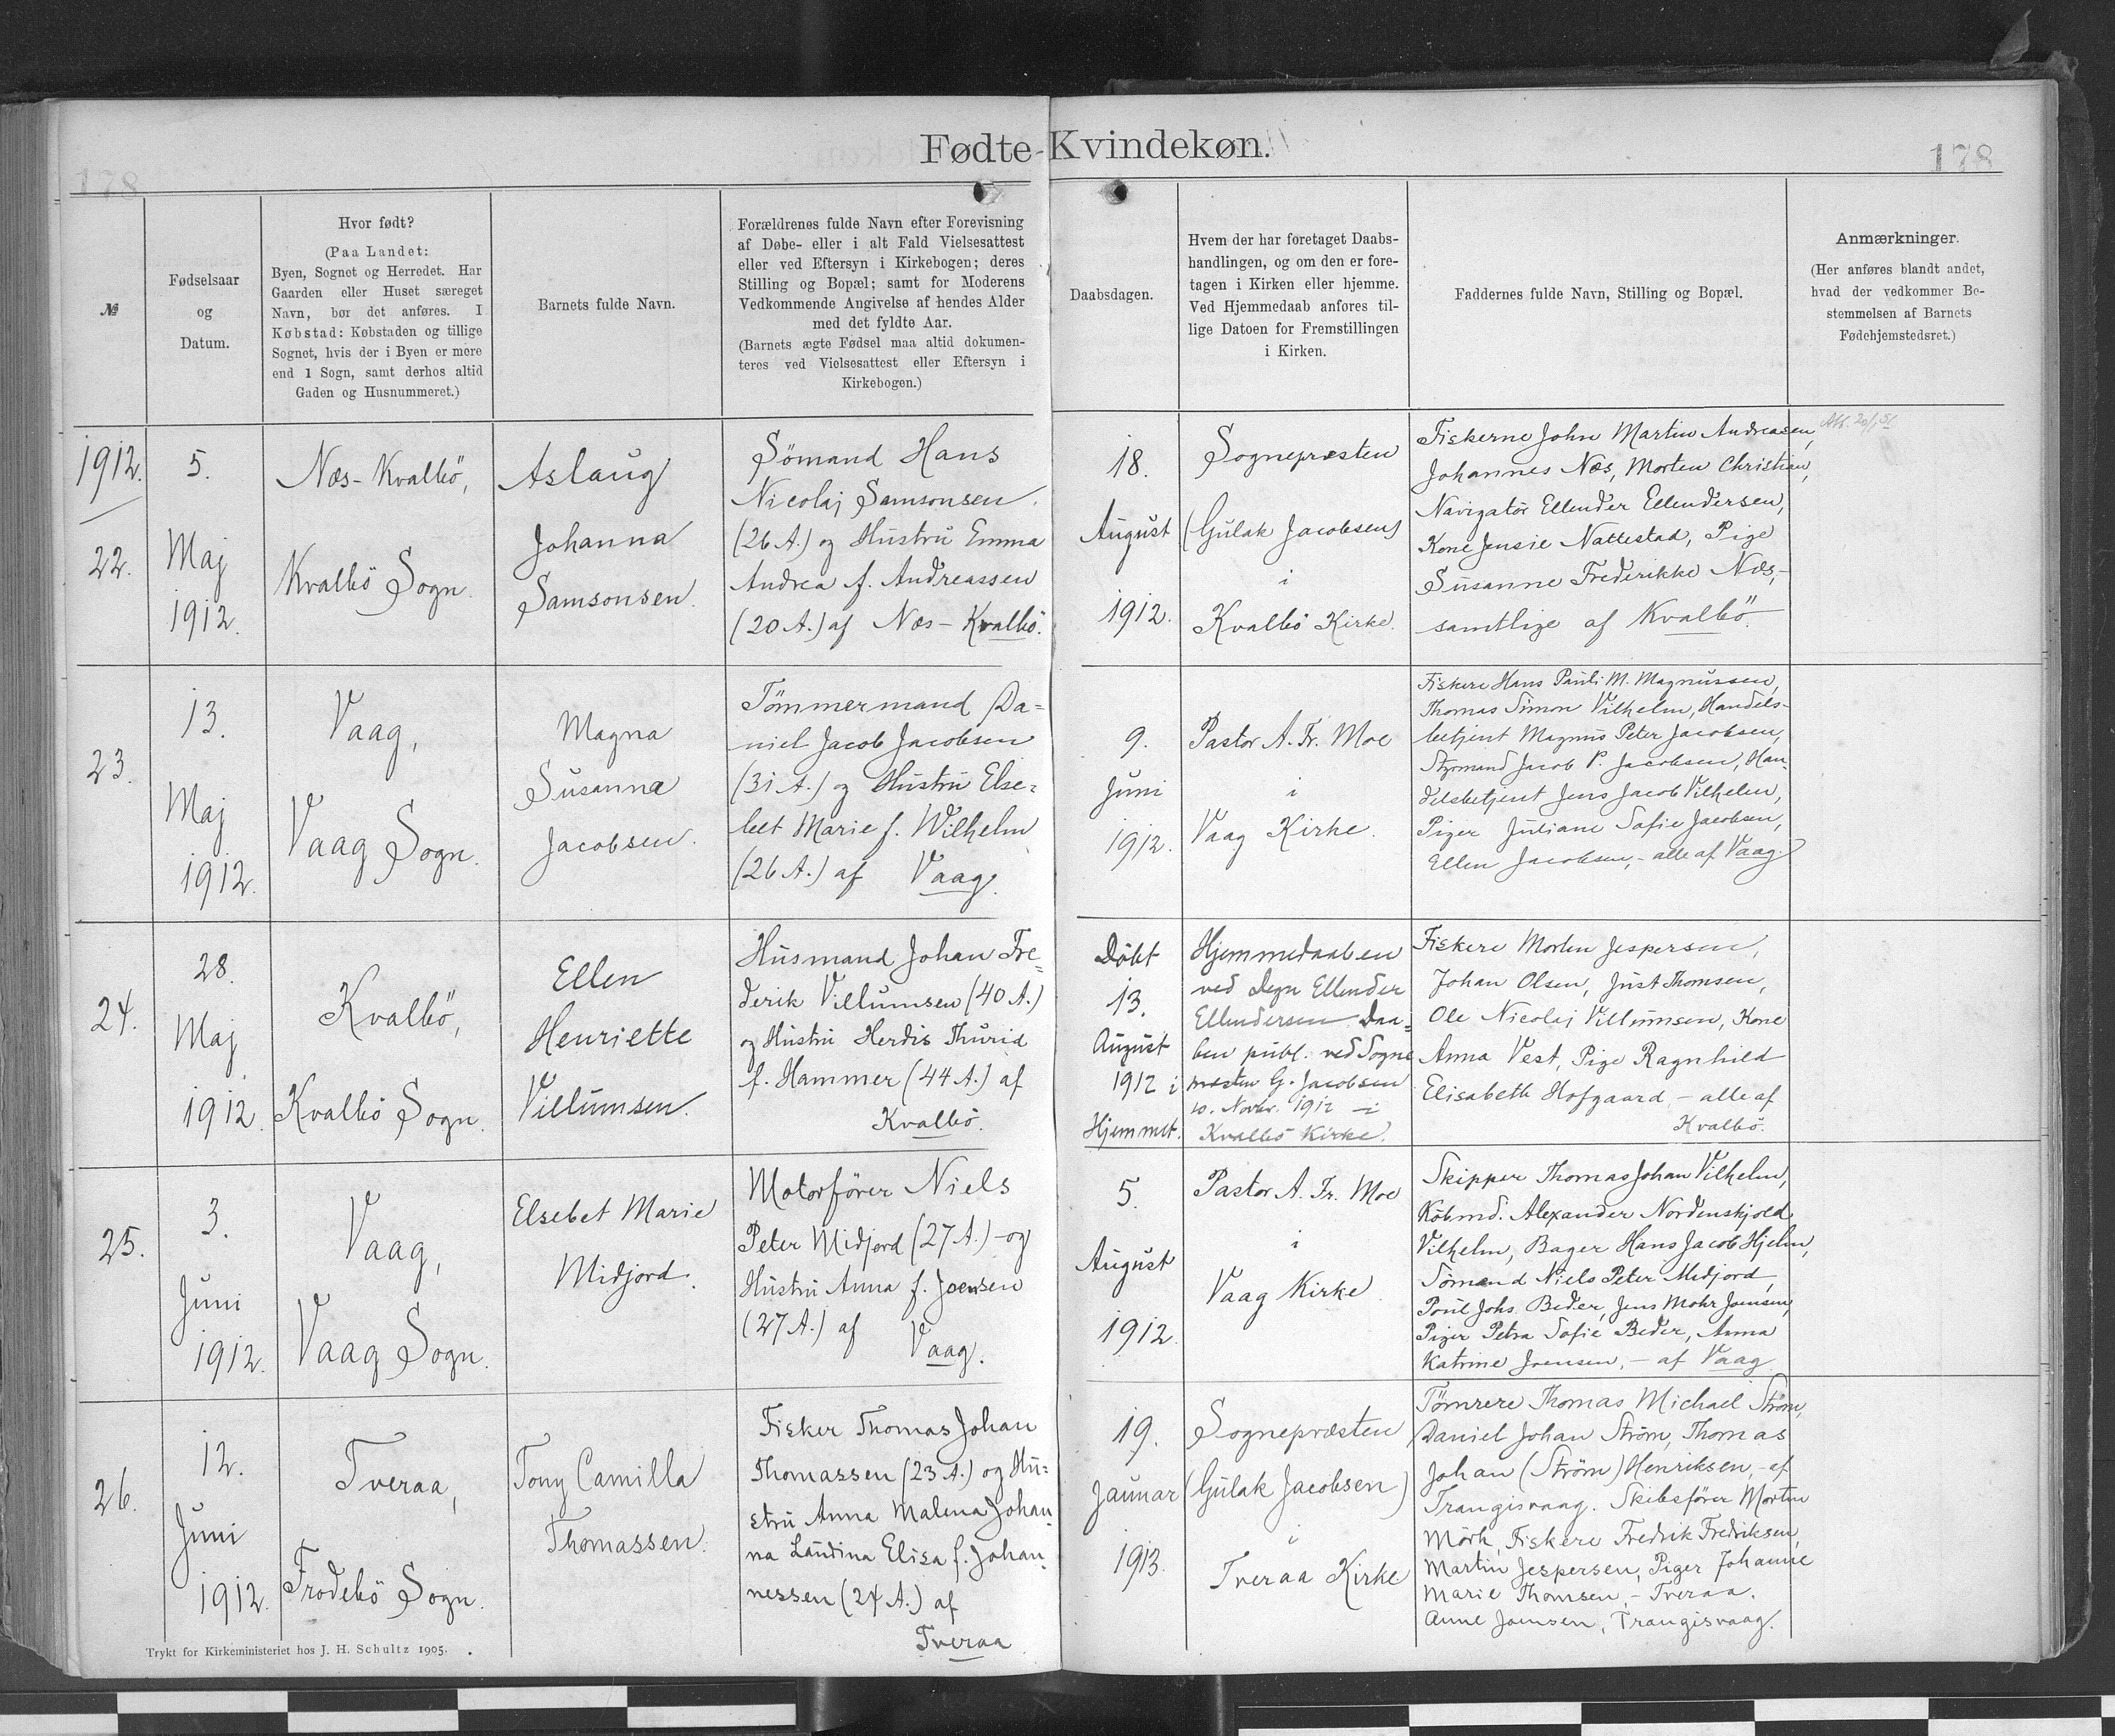 Fødte-Kvindekøn.
178
178
№
Fødselsaar
og
Datum.
Hvor født?
(Paa Landet:
Byen, Sognet og Herredet. Har
Gaarden eller Huset særeget
Navn, bør det anføres. I
Købstad: Købstaden og tillige
Sognet, hvis der i Byen er mere
end 1 Sogn, samt derhos altid
Gaden og Husnummeret.)
Barnets fulde Navn.
Forældrenes fulde Navn efter Forevisning
af Døbe- eller i alt Fald Vielsesattest
eller ved Eftersyn i Kirkebogen; deres
Stilling og Bopæl; samt for Moderens
Vedkommende Angivelse af hendes Alder
med det fyldte Aar.
(Barnets ægte Fødsel maa altid dokumen-
teres ved Vielsesattest eller Eftersyn i
Kirkebogen.)
Daabsdagen.
Hvem der har foretaget Daabs-
handlingen, og om den er fore-
tagen i Kirken eller hjemme.
Ved Hjemmedaab anføres til-
lige Datoen for Fremstillingen
i Kirken.
Faddernes fulde Navn, Stilling og Bopæl.
Anmærkninger.
(Her anføres blandt andet,
hvad der vedkommer Be-
stemmelsen af Barnets
Fødehjemstedsret.)
1912.
22.
5.
Maj
1912.
Næs-Kvalbö,
Kvalbö Sogn.
Aslaug
Johanna
Samsonsen.
Sömand Hans
Nicolaj Samsonsen
(26 A.) og Hustru Emma
Andrea f. Andreassen
(20 A.) af Næs-Kvalbö.
18.
August
1912.
Sognepræsten
(Gulak Jacobsen)
i
Kvalbö Kirke.
Fiskerne John Martin Andreasen,
Johannes Næs, Morten Christian,
Navigatör Ellender Ellendersen,
Kone Jensie Nattestad, Pige
Susanne Frederikke Næs,-
samtlige af Kvalbö.
23.
13.
Maj
1912.
Vaag,
Vaag Sogn.
Magna
Susanna
Jacobsen.
Tömmermand Da=
niel Jacob Jacobsen
(31 A.) og Hustru Else=
bet Marie f. Wilhelm
(26 A.) af Vaag.
9.
Juni
1912.
Pastor A. Fr. Moe
i
Vaag Kirke.
Fiskere Hans Pauli M. Magnussen,
Thomas Simon Vilhelm, Handels-
betjent Magnus Peter Jacobsen,
Styrmand Jacob P. Jacobsen, Han-
delsbetjent Jens Jacob Vilhelm,
Piger Juliane Sofie Jacobsen,
Ellen Jacobsen,- alle af Vaag.
24.
28.
Maj
1912.
Kvalbö,
Kvalbö Sogn.
Ellen
Henriette
Villumsen.
Husmand Johan Fre=
derik Villumsen (40 A.)
og Hustru Herdis Thurid
f. Hammer (44 A.) af
Kvalbö.
Döbt
13.
August
1912 i
Hjemmet.
Hjemmedaaben
ved Degn Ellender
Ellendersen. Daa=
ben publ. ved Sogne
præsten G. Jacobsen
10. Novbr. 1912 – i
Kvalbö Kirke.
Fiskere Morten Jespersen,
Johan Olsen, Just Thomsen,
Ole Nicolaj Villumsen, Kone
Anna Vest, Pige Ragnhild
Elisabeth Hofgaard – alle af
Kvalbö.
25.
3.
Juni
1912.
Vaag,
Vaag Sogn.
Elsebet Marie
Midjord.
Motorförer Niels
Peter Midjord (27 A.) og
Hustru Anna f. Joensen
(27 A.) af
Vaag.
5.
August
1912.
Pastor A. Fr. Moe
i
Vaag Kirke.
Skipper Thomas Johan Vilhelm,
Köbmd. Alexander Nordenskjold
Vilhelm, Bager Hans Jacob Hjelm,
Sömand Niels Peter Midjord,
Poul Johs. Beder, Jens Mohr Joensen,
Piger Petra Sofie Beder, Anna
Katrine Joensen, – af Vaag
26.
12.
Juni
1912.
Tveraa,
Frodebö Sogn.
Tony Camilla
Thomassen.
Fisker Thomas Johan
Thomassen (23 A.) og Hu=
stru Anna Malena Johan=
na Laudina Elisa f. Johan=
nessen (24 A.) af
Tveraa
19.
Januar
1913.
Sognepræsten
(Gulak Jacobsen)
i
Tveraa Kirke
Tömrere Thomas Michael Ström,
Daniel Johan Ström, Thomas
Johan (Ström) Henriksen, - af
Trangisvaag. Skibsförer Morten
Mörk, Fiskere Fredrik Fredriksen,
Martin Jespersen, Piger Johanne
Marie Thomsen, - Tveraa.
Anne Joensen, Trangisvaag.
Trykt for Kirkeministeriet hos J. H. Schultz 1905.